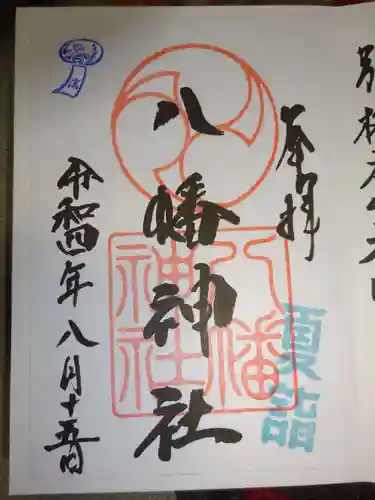 奉拝
八幡神社
八幡神社
夏詣
令和四年八月十五日